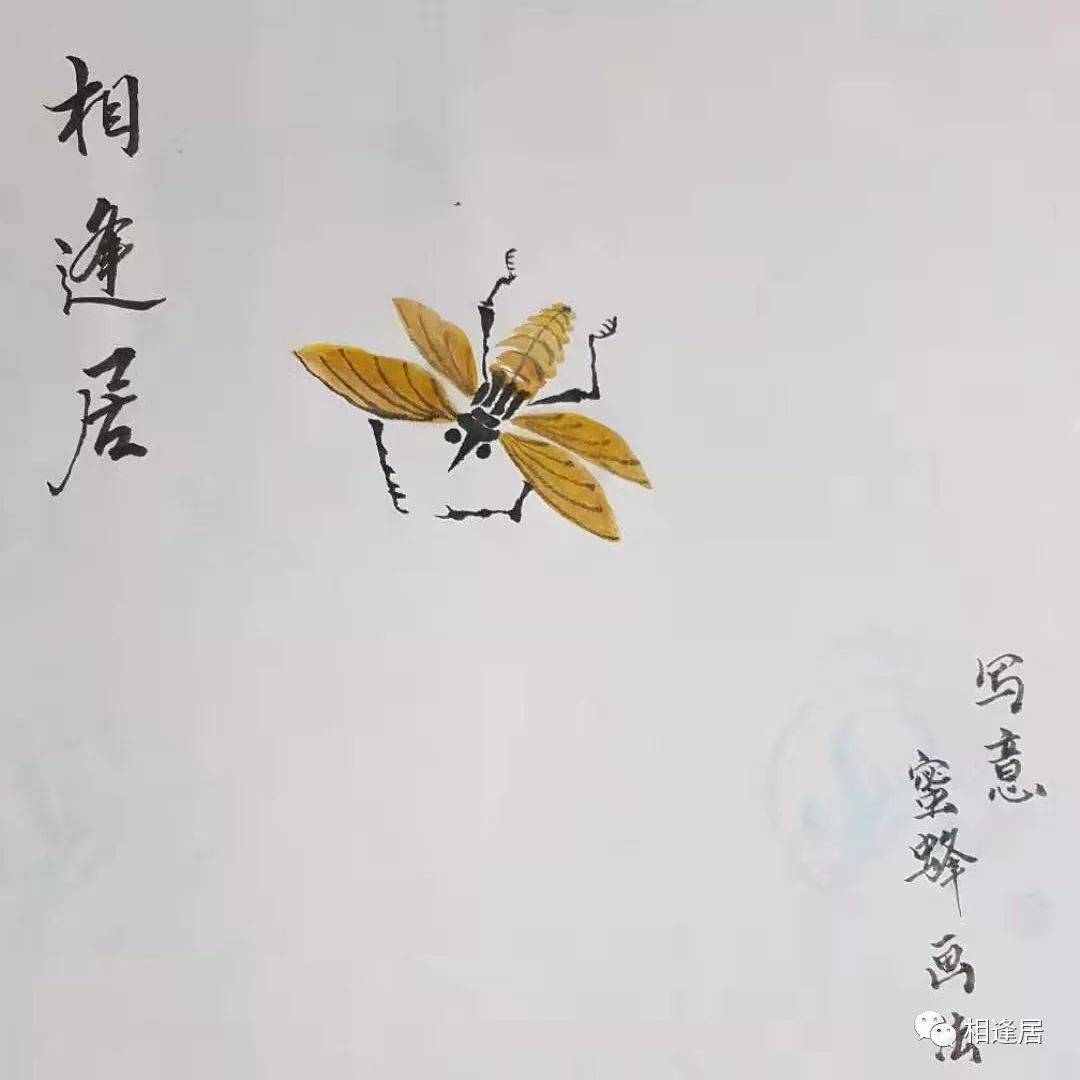 相逢居
写意
蜜蜂画法
相逢居